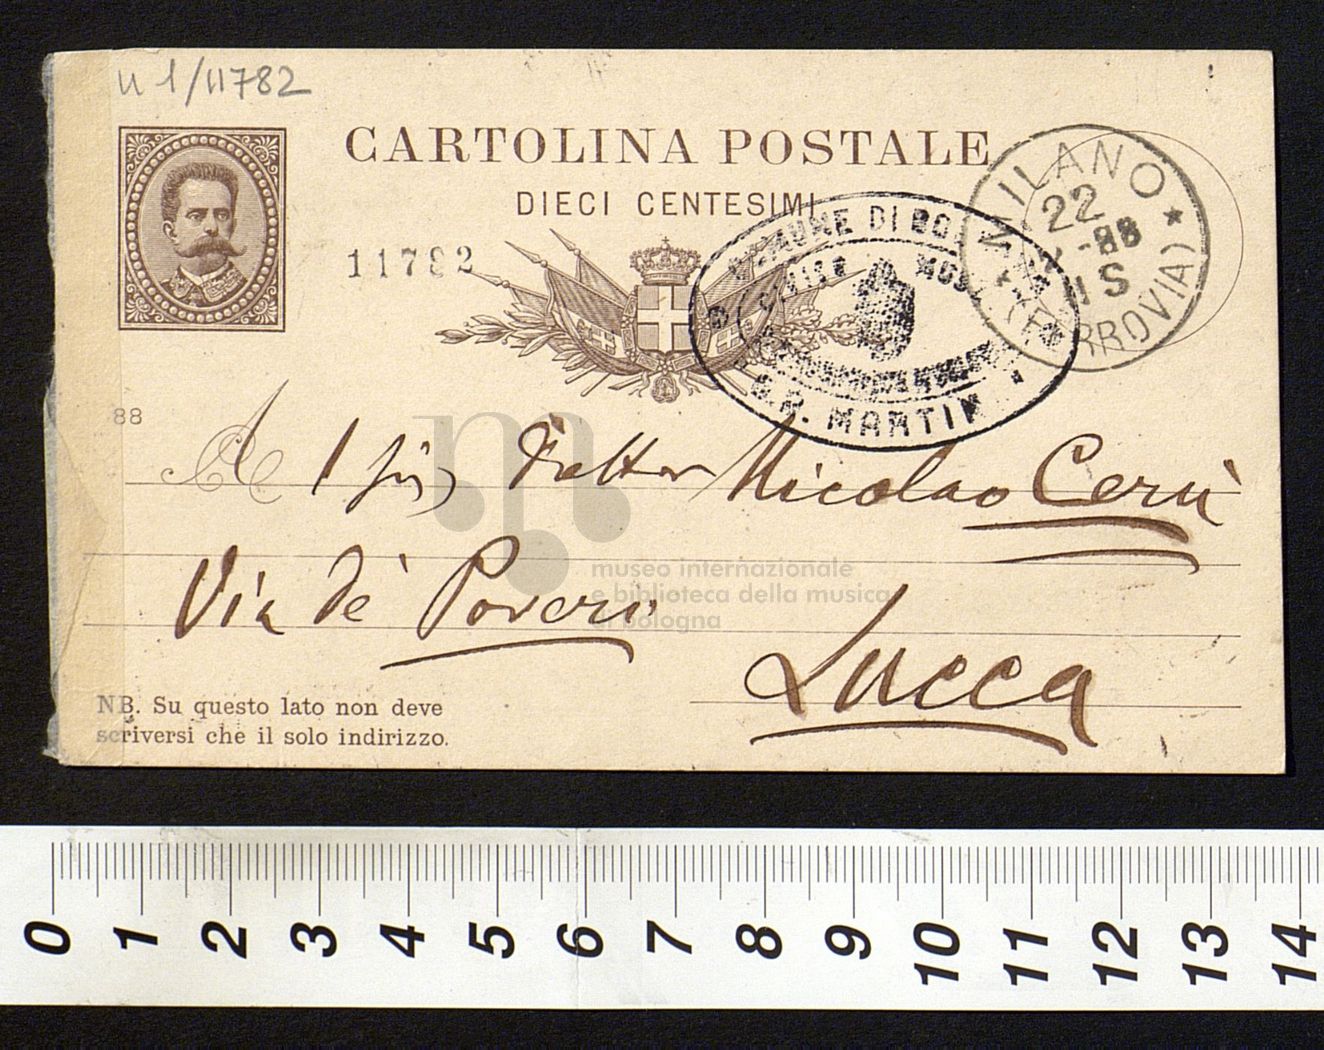 n 1/11782
CARTOLINA POSTALE
DIECI CENTESIMI
11782
MILANO
22
-88
1S
(FERROVIA)
COMUNE DI BO
G.B. MARTINI
88
A l Sig Dottor Nicolao Cerù
museo internazionale
e biblioteca della musica
di bologna
Via dè Poveri
Lucca
NB. Su questo lato non deve
scriversi che il solo indirizzo.
0 1 2 3 4 5 6 7 8 9 10 11 12 13 14